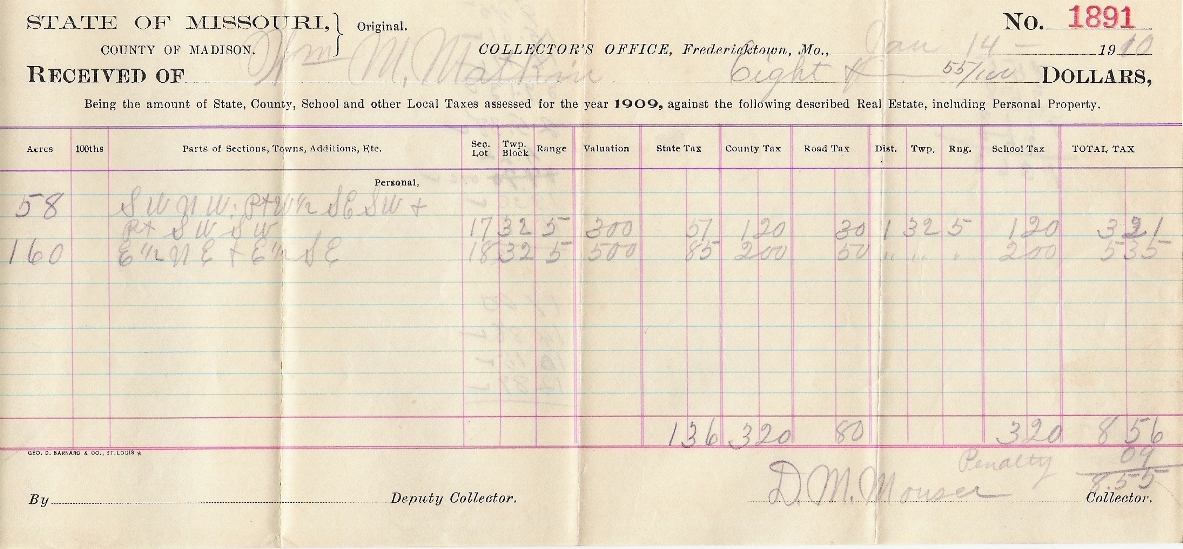 STATE OF MISSOURI,} Original. No. 1891
COUNTY OF MADISON. COLLECTOR'S OFFICE, Fredericktown, Mo., Jan 14 – 1910
RECEIVED OF Wm M. Matkin Eight & 55/100 DOLLARS,
Being the amount of State, County, School and other Local Taxes assessed for the year 1909, against the following described Real Estate, including Personal Property.
Acres 100ths Parts of Sections, Towns, Additions, Etc. Sec. Lot Twp. Block Range Valuation State Tax County Tax Road Tax Dist. Twp. Rng. School Tax TOTAL TAX
Personal,
58 SW NW: Pt W½ SE SW +
Pt SW SW 17 32 5 300 51 120 30 1 32 5 120 321
160 E½ NE + E½ SE 18 32 5 500 85 200 50 " " " 200 535
136 320 80 320 856
GEO. D. BARNARD & CO., ST. LOUIS
Penalty 09
8.55
By Deputy Collector. D. M. Mouser Collector.